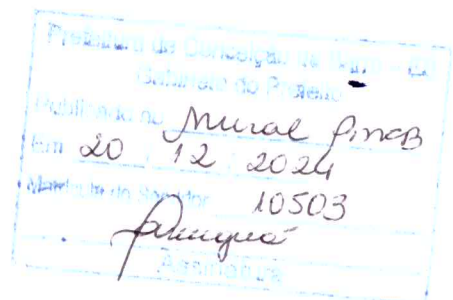 Prefeitura de Conceição da Barra - ES
Gabinete do Prefeito
Publicado no Mural PMCB
Em 20 / 12 / 2024
Matrícula do Servidor 10503
Assinatura